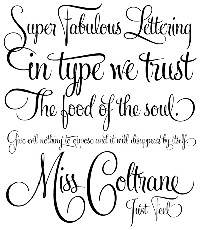 Super Fabulous Lettering
in type we trust
The food of the soul.
Give evil nothing to oppose and it will disappear by itself.
Miss Coltrane
Just Feel